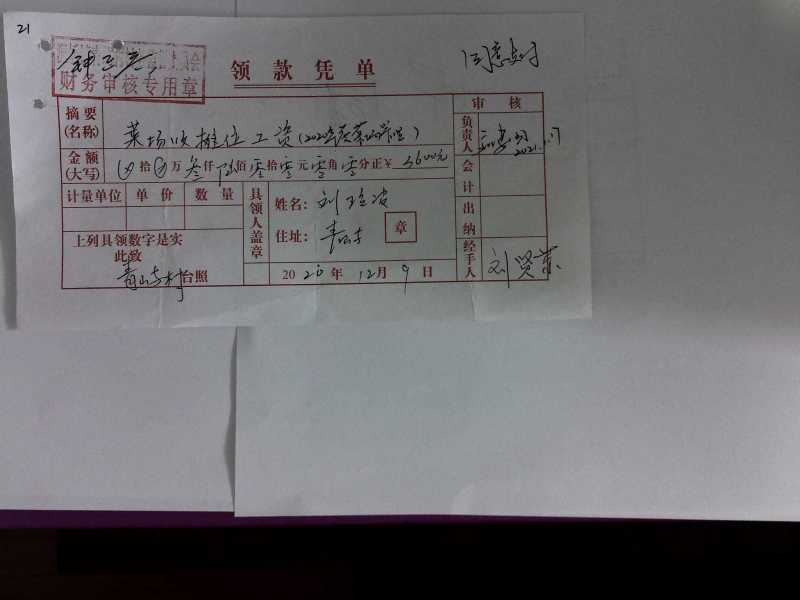 21
同意支付
财务审核专用章
领款凭单
摘要(名称) 菜场收摊位工资(2020年
审核
负责人 2021.
金额(大写) 拾 万叁仟陆佰零拾零元零角零分正¥3600元
会计
计量单位 单价 数量
具领人盖章
姓名:刘
住址:青山寺 章
出纳
上列具领数字是实
此致
青山寺村台照
2020年12月9日
经手人 刘贤